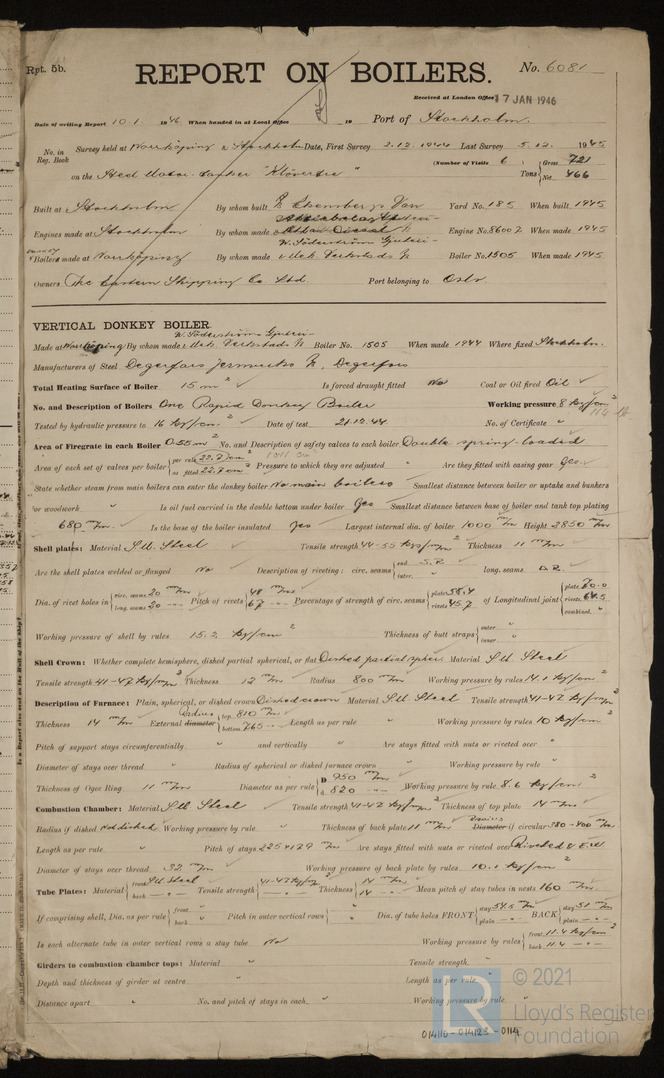 Rpt. 5b.
REPORT ON BOILERS.
No. 6081
Received at London Office 17 JAN 1946
Date of writing Report 10.1 1946 When handed in at Local Office 19 Port of Stockholm.
No. in Reg. Book
Survey held at Norrköping & Stockholm Date, First Survey 2.12.1944 Last Survey 5.12. 1945
(Number of Visits 6)
on the Steel Motor Tanker "Klövertre"
Tons { Gross 721
Net 466
Built at Stockholm By whom built Yard No. 185 When built 1945
Engines made at Stockholm By whom made Engine No. 86007 When made 1945
W. Söderströms Gjuteri-
Donkey Boilers made at Norrköping By whom made & Mek. Verkstads Boiler No. 1505 When made 1945
Owners The Eastern Shipping Co Ltd. Port belonging to Oslo.
VERTICAL DONKEY BOILER.
W. Söderströms Gjuteri-
Made at Norrköping By whom made & Mek. Verkstads Boiler No. 1505 When made 1944 Where fixed Stockholm.
Manufacturers of Steel Degerfors Jernverks Degerfors
Total Heating Surface of Boiler 15 m2 Is forced draught fitted No Coal or Oil fired Oil
No. and Description of Boilers One Rapid Donkey Boiler Working pressure 8 kg/cm2
Tested by hydraulic pressure to 16 kg/cm2 Date of test 21.12.44 No. of Certificate "
Area of Firegrate in each Boiler 0.55 m2 No. and Description of safety valves to each boiler Double spring-loaded
Area of each set of valves per boiler { per rule 22.7 cm2 as fitted 22.7 cm2 Pressure to which they are adjusted " Are they fitted with easing gear Yes.
State whether steam from main boilers can enter the donkey boiler No main boilers Smallest distance between boiler or uptake and bunkers
or woodwork " Is oil fuel carried in the double bottom under boiler Yes Smallest distance between base of boiler and tank top plating
680 m/m. Is the base of the boiler insulated Yes Largest internal dia. of boiler 1000 m/m Height 2850 m/m
Shell plates: Material S.M. Steel Tensile strength 44-55 kg/m/m2 Thickness 11 m/m
Are the shell plates welded or flanged No Description of riveting: circ. seams { end S.R. inter. " long. seams D.R.
Dia. of rivet holes in { circ. seams 20 m/m long. seams 20 -"- Pitch of rivets { 48 m/m 67 -"- Percentage of strength of circ. seams { plate 58.4 rivets 45.7 of Longitudinal joint { plate 70.0 rivets 64.5 combined. "
Working pressure of shell by rules 15.2 kg/cm2 Thickness of butt straps { outer " inner "
Shell Crown: Whether complete hemisphere, dished partial spherical, or flat Dished partial spher. Material S.M. Steel
Tensile strength 41-47 kg/m/m2 Thickness 12 m/m Radius 800 m/m Working pressure by rules 14.1 kg/cm2
Description of Furnace: Plain, spherical, or dished crown Dished crown Material S.M. Steel Tensile strength 41-47 kg/m/m2
Thickness 14 m/m External diameter Radius { top 810 m/m bottom 765 -"- Length as per rule " Working pressure by rules 10 kg/cm2
Pitch of support stays circumferentially " and vertically " Are stays fitted with nuts or riveted over "
Diameter of stays over thread " Radius of spherical or dished furnace crown " Working pressure by rule "
Thickness of Ogee Ring 11 m/m Diameter as per rule { D 950 m/m d 820 -"- Working pressure by rule 8.6 kg/cm2
Combustion Chamber: Material S.M. Steel Tensile strength 41-47 kg/m/m2 Thickness of top plate 14 m/m
Radius if dished Not dished Working pressure by rule " Thickness of back plate 11 m/m Diameter Radius if circular 380-400 m/m
Length as per rule " Pitch of stays Are stays fitted with nuts or riveted over Riveted & E.W.
Diameter of stays over thread 32 m/m Working pressure of back plate by rules 10.1 kg/cm2
Tube Plates: Material { front S.M. Steel back -"- Tensile strength { 41-47 kg/m/m2 -"- Thickness { 14 m/m 14 -"- Mean pitch of stay tubes in nests 160 m/m
If comprising shell, Dia. as per rule { front " back " Pitch in outer vertical rows { " Dia. of tube holes FRONT { stay 54.5 m/m plain -"- BACK { stay 51 m/m plain -"-
Is each alternate tube in outer vertical rows a stay tube No Working pressure by rules { front 11.4 kg/cm2 back 11.4 -"-
Girders to combustion chamber tops: Material " Tensile strength "
Depth and thickness of girder at centre " Length as per rule "
Distance apart " No. and pitch of stays in each " Working pressure by rule "
© 2021
Lloyd's Register
Foundation
014116-014123-0114